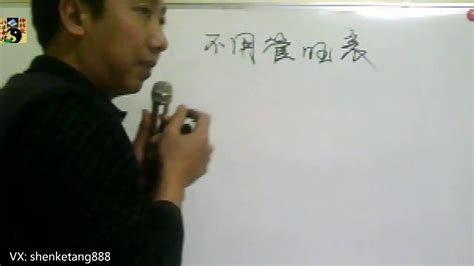 不用管旺衰
VX: shenketang888